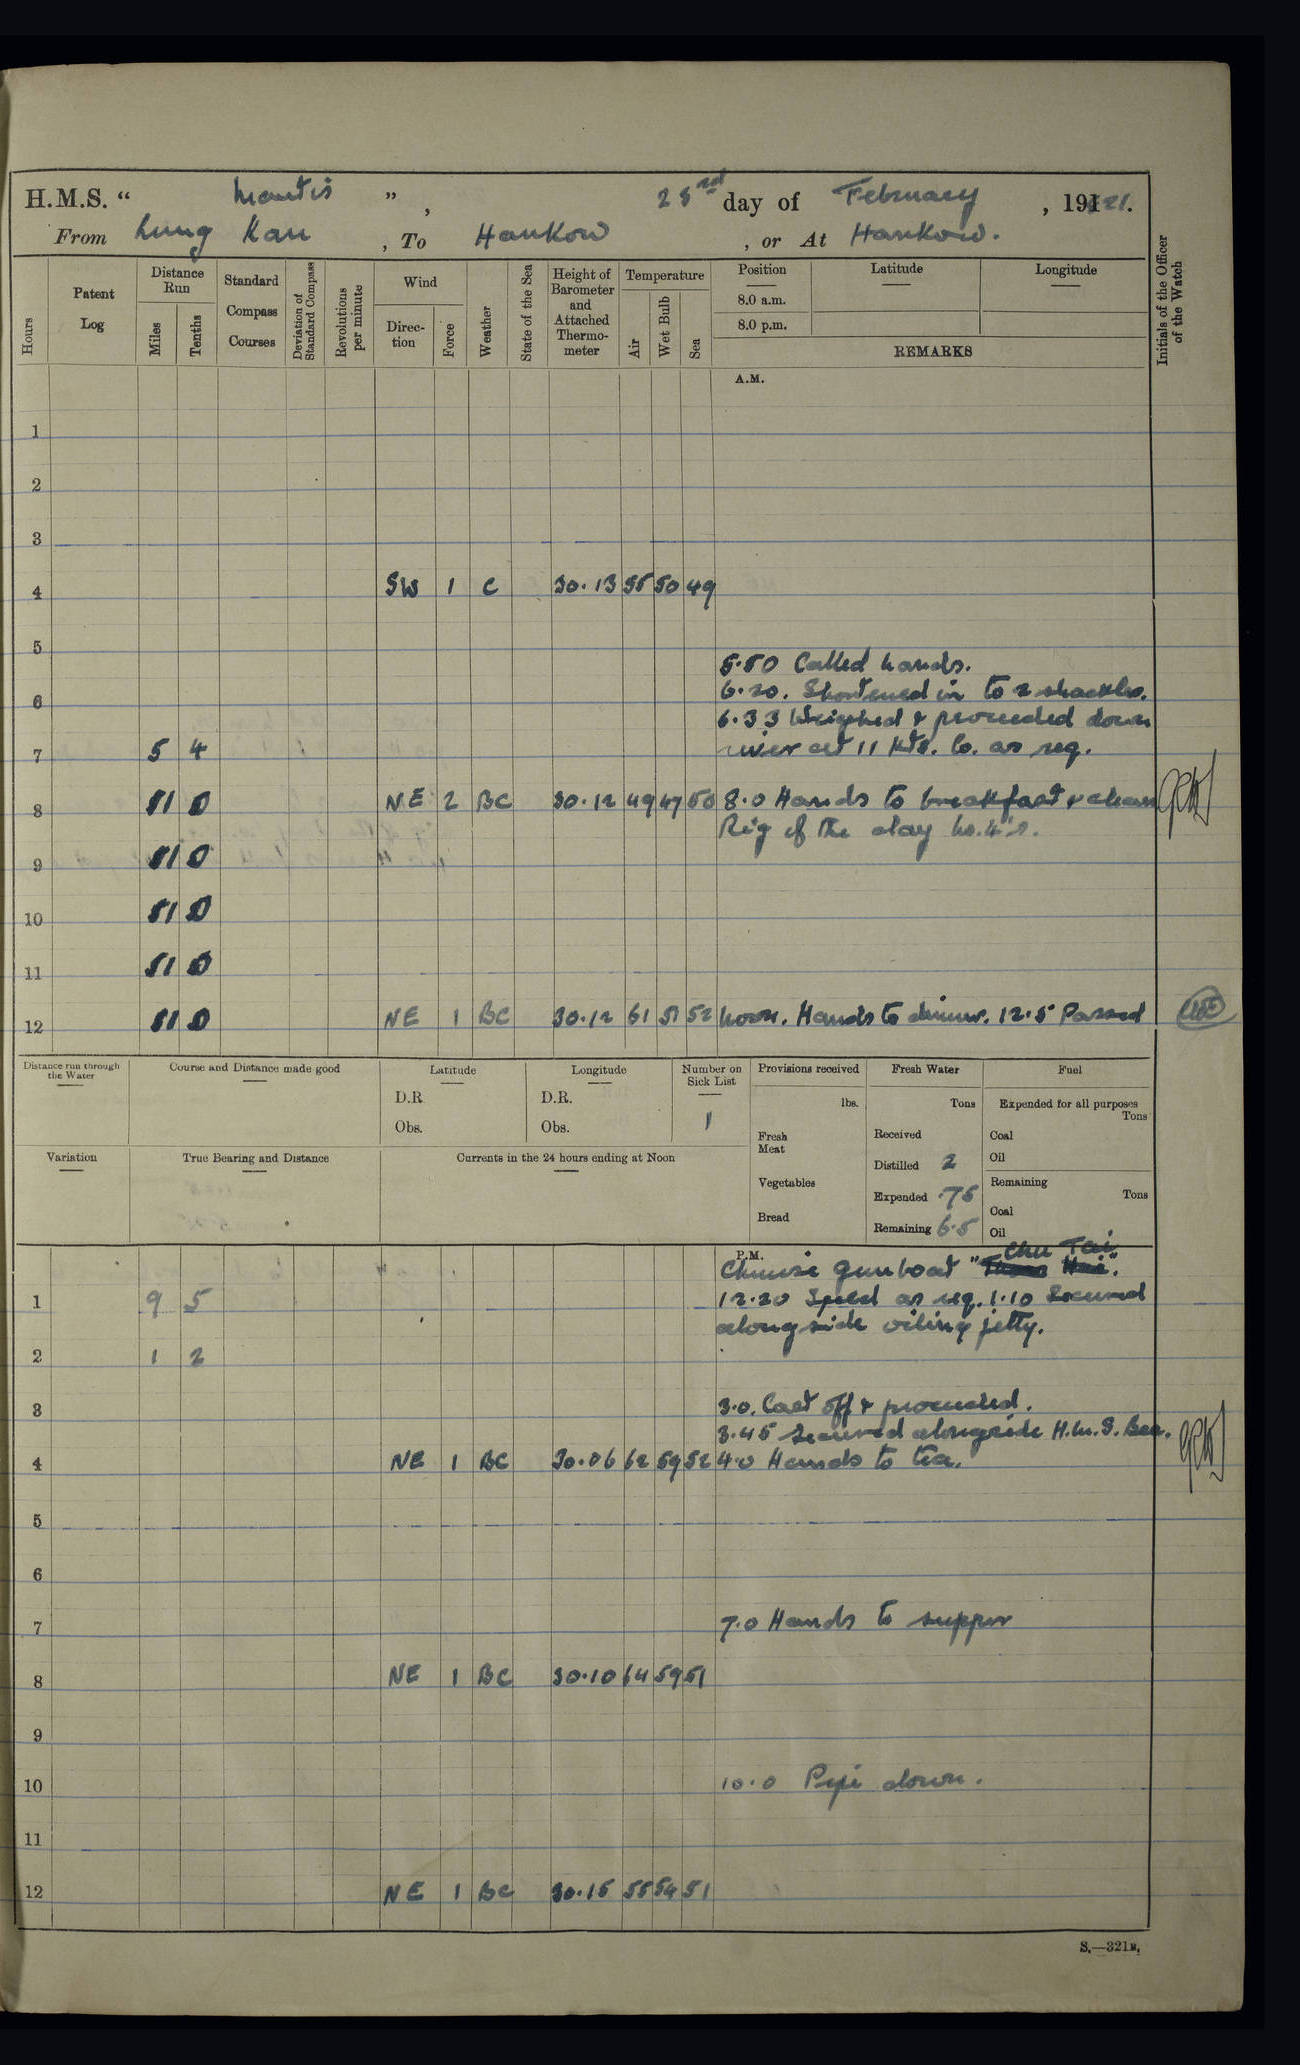 H.M.S. " Mantis ", 23rd day of February, 1921.
From Lung Kau, To Hankow, or At Hankow.
Hours
Patent Log
Distance Run
Miles
Tenths
Standard Compass Courses
Deviation of Standard Compass
Revolutions per minute
Wind
Direction
Force
Weather
State of the Sea
Height of Barometer and Attached Thermometer
Temperature
Air
Wet Bulb
Sea
Position
8.0 a.m.
8.0 p.m.
Latitude
Longitude
REMARKS
Initials of the Officer of the Watch
A.M.
1
2
3
4 SW 1 C 30.13 55 50 49
5
5.50 Called hands.
6.20. Shortened in to 2 shackles.
6
6.33 Weighed & proceeded down
7 5 4 river at 11 kts. Co. as req.
8 11 0 NE 2 BC 30.12 49 47 50 8.0 Hands to breakfast & clean
Rig of the day No. 4's.
9 11 0
10 11 0
11 11 0
12 11 0 NE 1 BC 30.12 61 51 52 Noon. Hands to dinner. 12.5 Passed
Distance run through the Water
Course and Distance made good
Latitude
D.R
Obs.
Longitude
D.R.
Obs.
Number on Sick List
1
Provisions received
lbs.
Fresh Meat
Vegetables
Bread
Fresh Water
Tons
Received
Distilled 2
Expended .75
Remaining 6.5
Fuel
Expended for all purposes
Tons
Coal
Oil
Remaining
Tons
Coal
Oil
Variation
True Bearing and Distance
Currents in the 24 hours ending at Noon
P.M.
Chu Tai
Chinese Gunboat " ".
1 9 5 12.20 Speed as req. 1.10 Secured
alongside oiling jetty.
2 1 2
3 3.0. Cast off & proceeded.
3.45 Secured alongside H.M.S. Bee.
4 NE 1 BC 30.06 62 59 52 4.0 Hands to tea.
5
6
7 7.0 Hands to supper
8 NE 1 BC 30.10 64 59 51
9
10 10.0 Pipe down.
11
12 NE 1 BC 30.15 55 54 51
S.—321B.